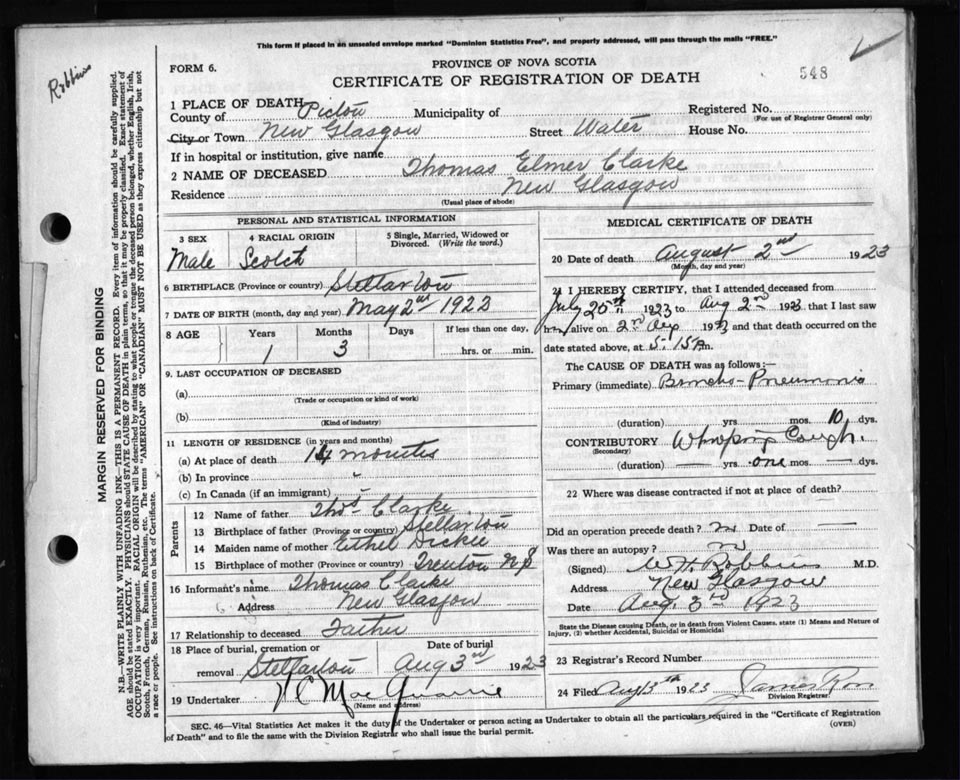 This form if placed in an unsealed envelope marked "Dominion Statistics Free", and property addressed, will pass through the mails "FREE."
Robbins
FORM 6.
PROVINCE OF NOVA SCOTIA
CERTIFICATE OF REGISTRATION OF DEATH
548
1 PLACE OF DEATH
County of Pictou Municipality of Registered No.
(For use of Registrar General only)
City or Town New Glasgow Street Water House No.
If in hospital or institution, give name
2 NAME OF DECEASED Thomas Elmer Clarke
Residence New Glasgow
(Usual place of abode)
PERSONAL AND STATISTICAL INFORMATION
3 SEX 4 RACIAL ORIGIN 5 Single, Married, Widowed or Divorced. (Write the word.)
Male Scotch
6 BIRTHPLACE (Province or country) Stellarton
7 DATE OF BIRTH (month, day and year) May 2nd 1922
8 AGE Years Months Days If less than one day,
1 3 hrs. or min.
9. LAST OCCUPATION OF DECEASED
(a)
(Trade or occupation or kind of work)
(b)
(Kind of industry)
11 LENGTH OF RESIDENCE (in years and months)
(a) At place of death 14 months
(b) In province
(c) In Canada (if an immigrant)
Parents
12 Name of father Thos Clarke
13 Birthplace of father (Province or country) Stellarton
14 Maiden name of mother Ethel Dickie
15 Birthplace of mother (Province or country) Trenton N S
16 Informant's name Thomas Clarke
Address New Glasgow
17 Relationship to deceased Father
18 Place of burial, cremation or removal Stellarton Date of burial Aug 3rd 1923
19 Undertaker MacQuarrie
(Name and address)
MEDICAL CERTIFICATE OF DEATH
20 Date of death August 2nd 1923
(Month, day and year)
21 I HEREBY CERTIFY, that I attended deceased from
July 20th 1923 to Aug 2nd 1923 that I last saw
him alive on 2nd Aug 1923 and that death occurred on the
date stated above, at 5.15 A m.
The CAUSE OF DEATH was as follows:—
Primary (immediate) Broncho-Pneumonia
(duration) yrs. mos. 10 dys.
CONTRIBUTORY Whooping Cough.
(Secondary)
(duration) — yrs. one mos. — dys.
22 Where was disease contracted if not at place of death?
Did an operation precede death? no Date of —
Was there an autopsy? no
(Signed) W.H. Robbins M.D.
Address New Glasgow
Date Aug. 3rd 1923
State the Disease causing Death, or in death from Violent Causes, state (1) Means and Nature of Injury, (2) whether Accidental, Suicidal or Homicidal
23 Registrar's Record Number
24 Filed Aug 3th 1923 James Ross
Division Registrar
SEC. 46—Vital Statistics Act makes it the duty of the Undertaker or person acting as Undertaker to obtain all the particulars required in the "Certificate of Registration
of Death" and to file the same with the Division Registrar who shall issue the burial permit.
(OVER)
MARGIN RESERVED FOR BINDING
N.B.—WRITE PLAINLY WITH UNFADING INK—THIS IS A PERMANENT RECORD. Every item of information should be carefully supplied.
AGE should be stated EXACTLY. PHYSICIANS should STATE CAUSE OF DEATH in plain terms, so that it may be properly classified. Exact statement of
OCCUPATION is very important. RACIAL ORIGIN will be described by stating to what people or tongue the deceased person belonged, whether English, Irish,
Scotch, French, German, Russian, Ruthenian, etc. The terms "AMERICAN" OR "CANADIAN" MUST NOT BE USED as they express citizenship but not
a race or people. See instructions on back of Certificate.